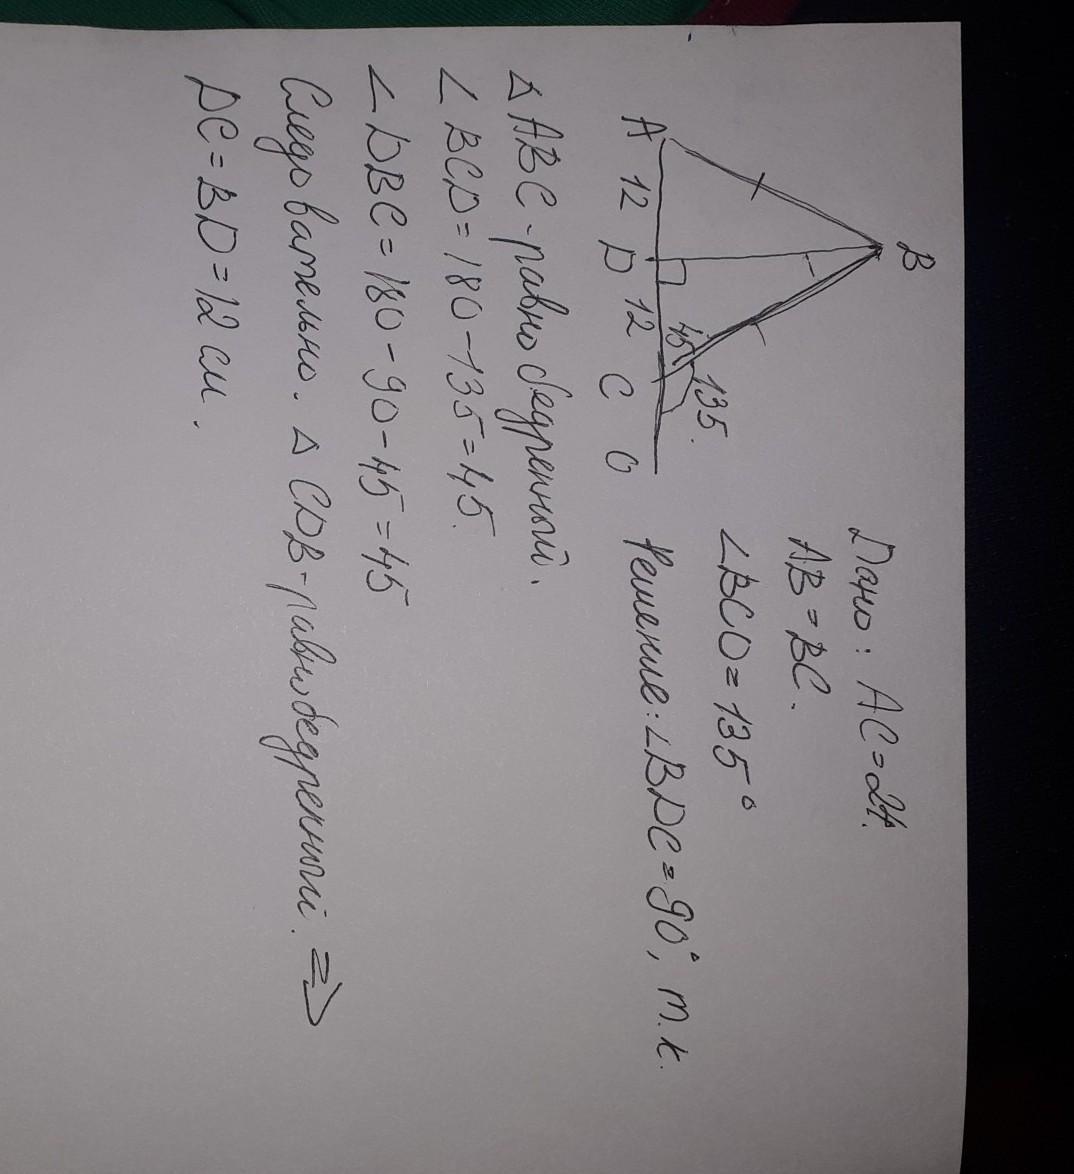 B
A 12 D 12 C O
45
135.
Дано: AC = 24.
AB = BC.
∠BCO = 135°
Решение: ∠BDC = 90°, т.к.
△ ABC - равнобедренный.
∠ BCD = 180 - 135 = 45.
∠ DBC = 180 - 90 - 45 = 45
Следовательно. △ CDB - равнобедренный. ⇒
DC = BD = 12 см.